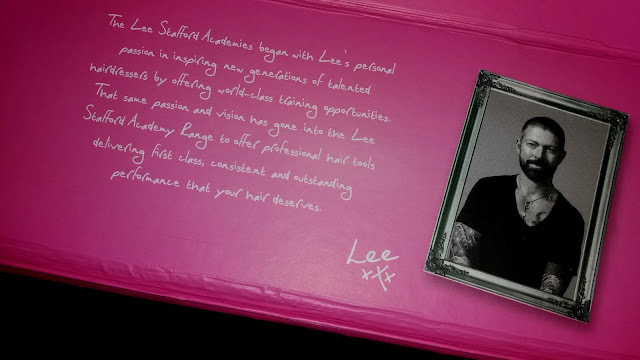 The Lee Stafford Academies began with Lee's personal
passion in inspiring new generations of talented
hairdressers by offering world-class training opportunities.
That same passion and vision has gone into the Lee
Stafford Academy Range to offer professional hair tools
delivering first class, consistent and outstanding
performance that your hair deserves.
Lee
xXx